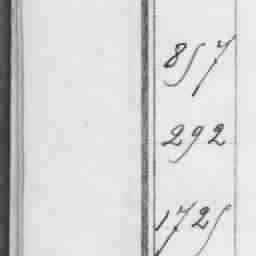 857
292
1725